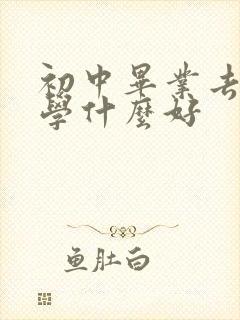 初中畢業去
學什麼好
鱼肚白